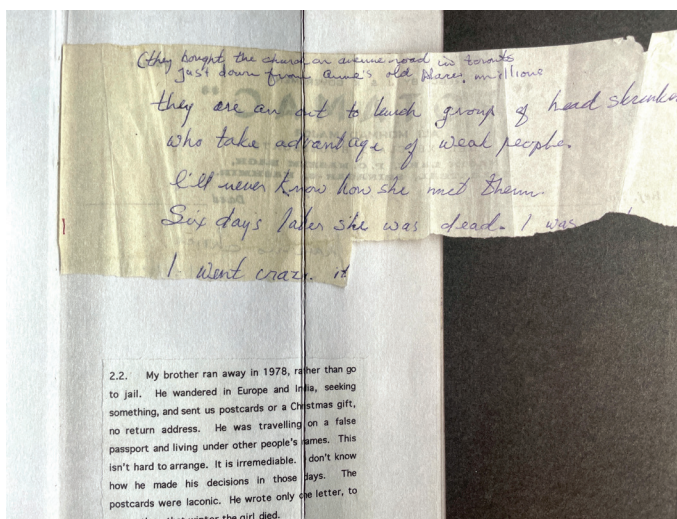 (they bought the church on avenue road in toronto
just down from anne's old place, millions
they are an out to lunch group of head shrinke
who take advantage of weak people.
I'll never know how she met them.
Six days later she was dead. I was
I went crazy. it
2.2. My brother ran away in 1978, rather than go
to jail. He wandered in Europe and India, seeking
something, and sent us postcards or a Christmas gift,
no return address. He was travelling on a false
passport and living under other people's names. This
isn't hard to arrange. It is irremediable. I don't know
how he made his decisions in those days. The
postcards were laconic. He wrote only one letter, to
that winter the girl died.